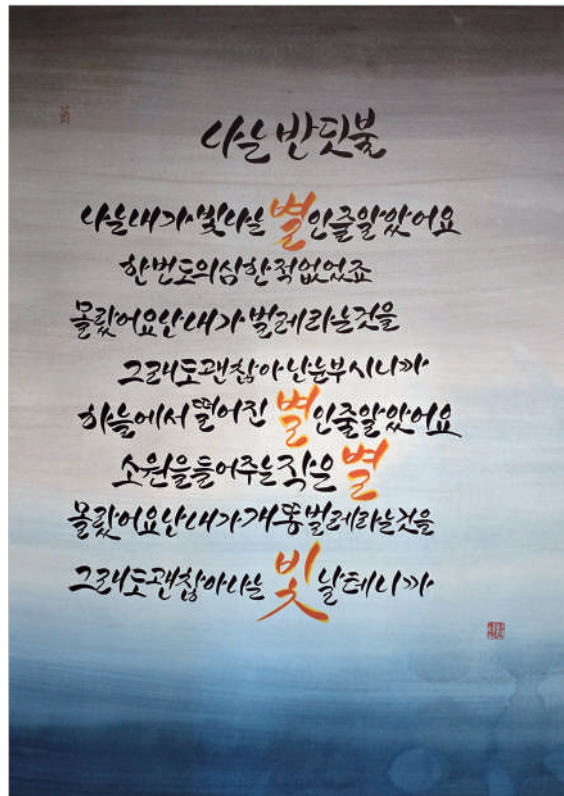 나는 반딧불
나는 내가 빛나는 별인 줄 알았어요
한 번도 의심한 적 없었죠
몰랐어요 난 내가 벌레라는 것을
그래도 괜찮아 난 눈부시니까
하늘에서 떨어진 별인 줄 알았어요
소원을 들어주는 작은 별
몰랐어요 난 내가 개똥벌레라는 것을
그래도 괜찮아 나는 빛날 테니까